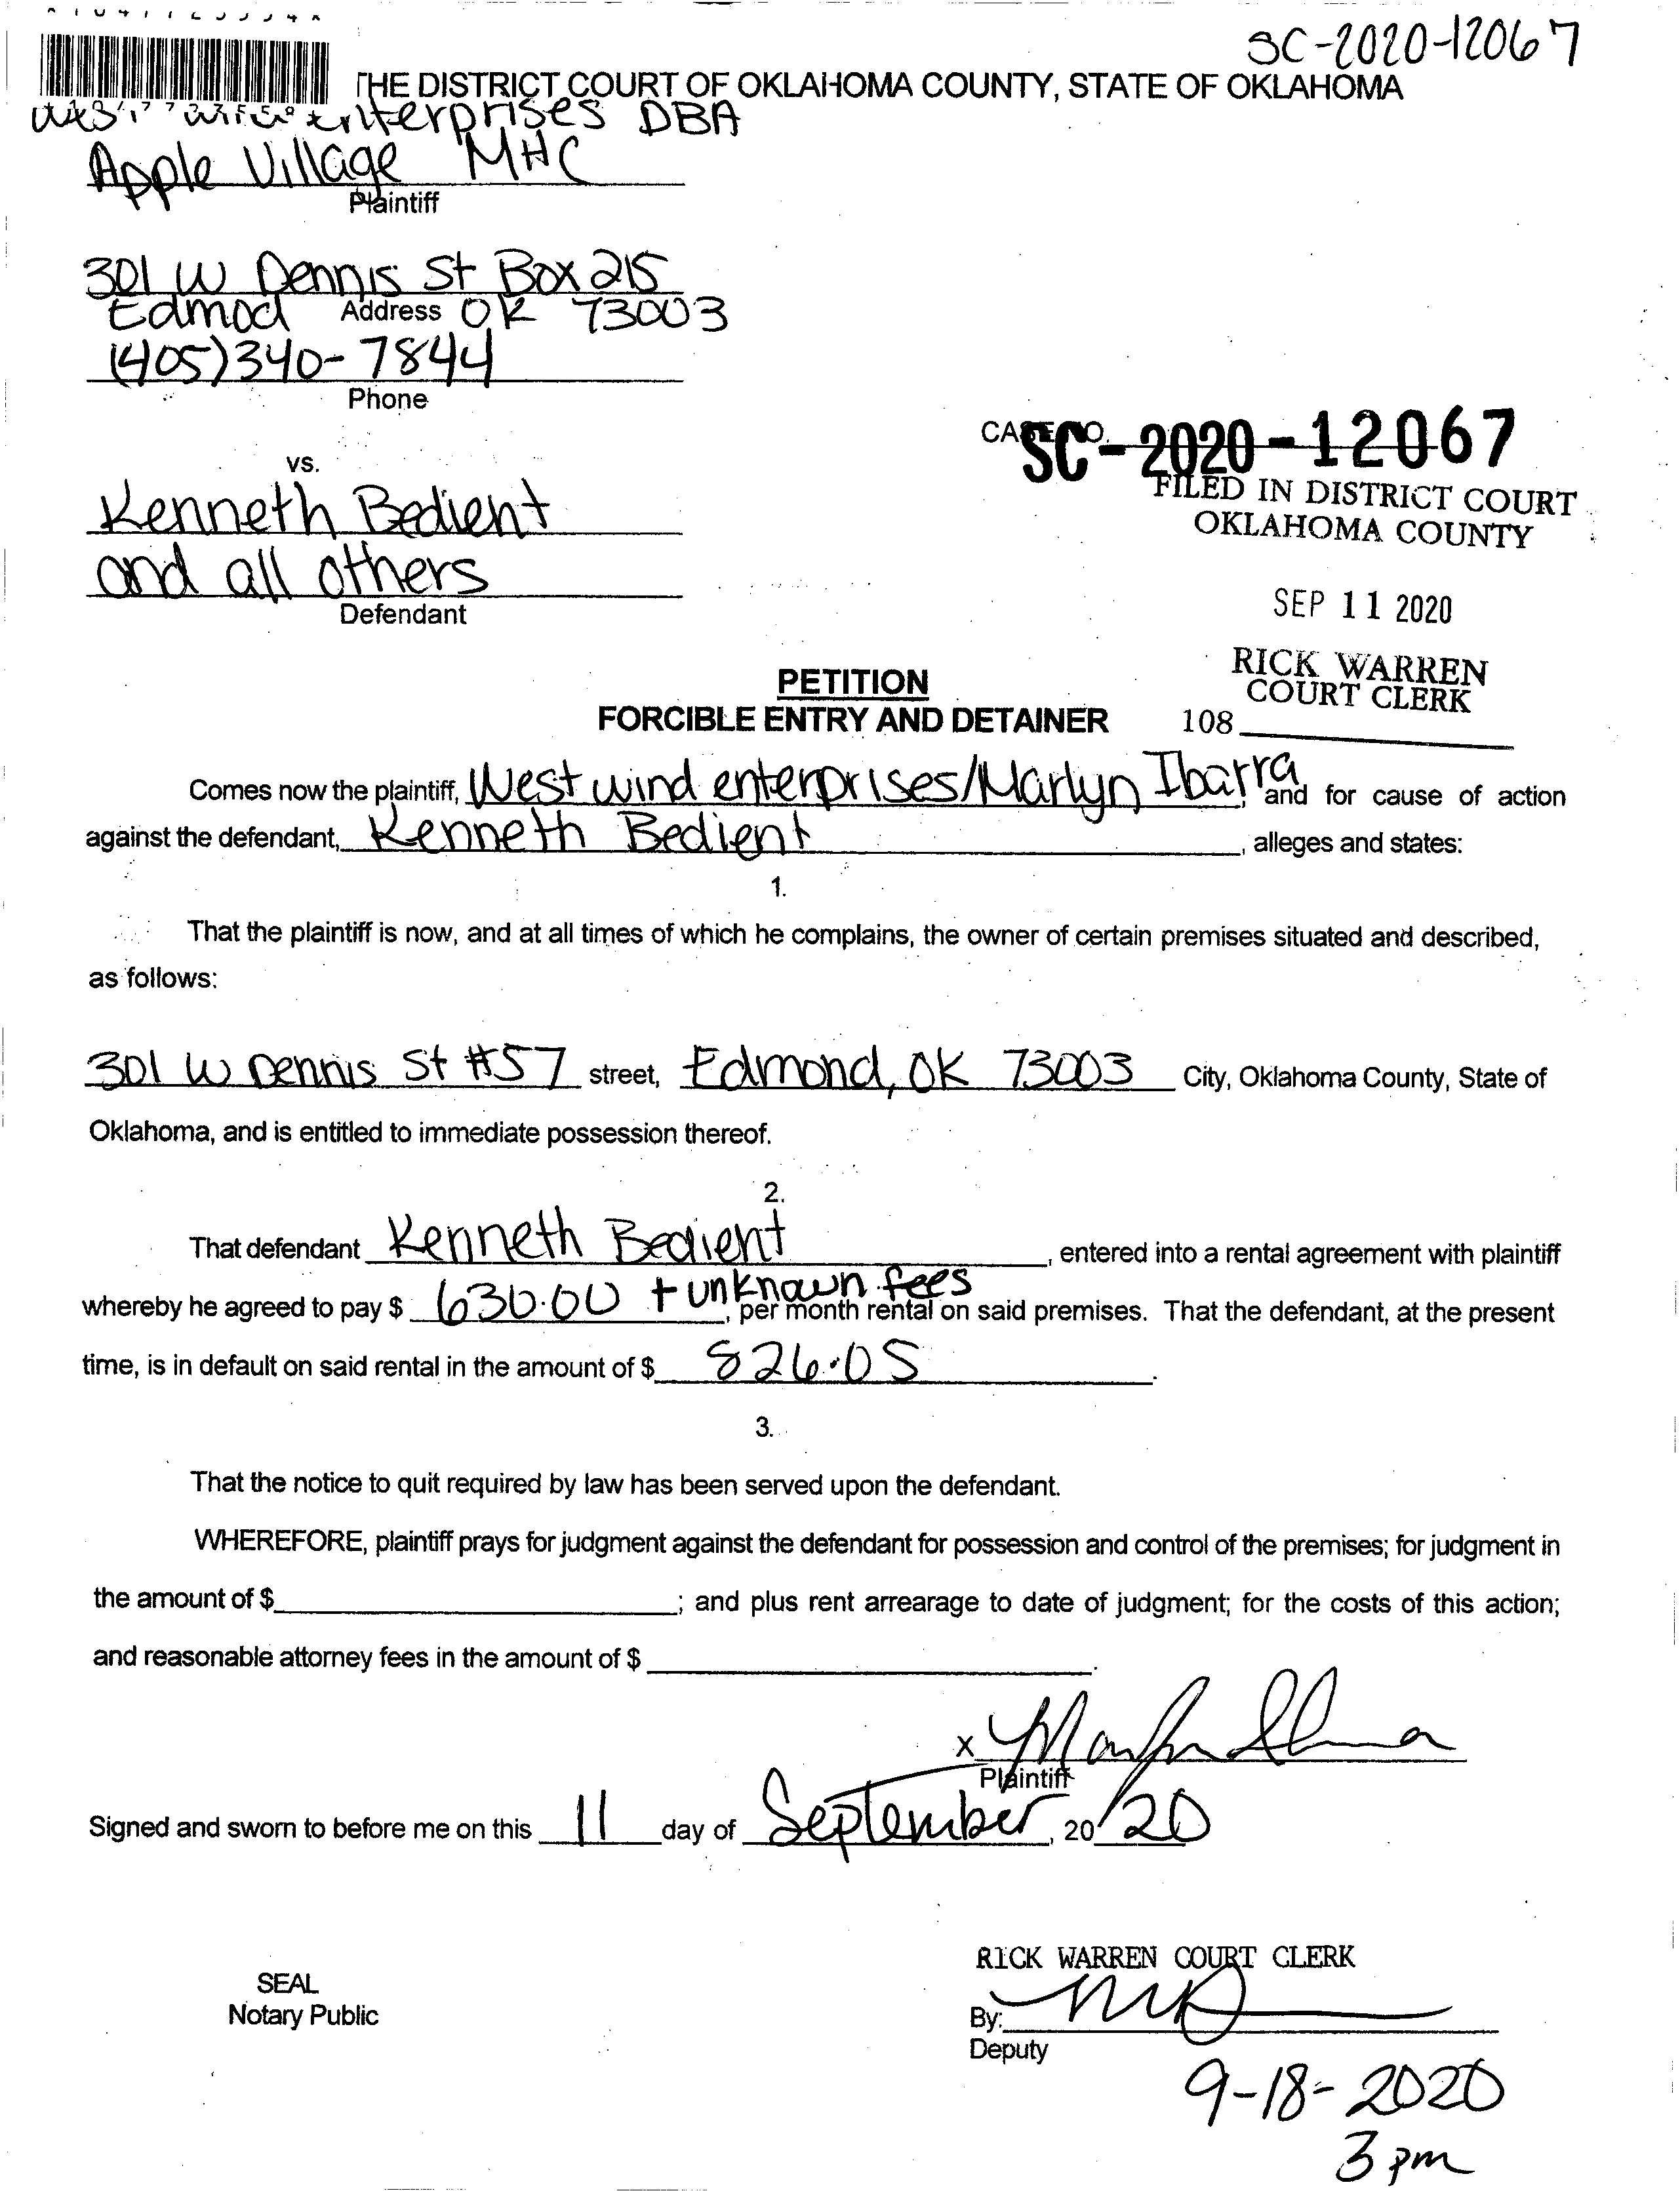 SC-2020-12067
THE DISTRICT COURT OF OKLAHOMA COUNTY, STATE OF OKLAHOMA
enterprises DBA
Apple Village MHC
Plaintiff
301 W Dennis St Box 215
Edmod Address OK 73003
(405)340-7844
Phone
CASE NO. SC-2020-12067
vs.
FILED IN DISTRICT COURT
OKLAHOMA COUNTY
Kenneth Bedient
and all others
Defendant
SEP 11 2020
RICK WARREN
COURT CLERK
108
PETITION
FORCIBLE ENTRY AND DETAINER
Comes now the plaintiff, West wind enterprises/Marlyn Ibarra, and for cause of action
against the defendant, Kenneth Bedient, alleges and states:
1.
That the plaintiff is now, and at all times of which he complains, the owner of certain premises situated and described,
as follows:
301 W Dennis St #57 street, Edmond, OK 73003 City, Oklahoma County, State of
Oklahoma, and is entitled to immediate possession thereof.
2.
That defendant Kenneth Bedient, entered into a rental agreement with plaintiff
whereby he agreed to pay $ 630.00 + unknown fees, per month rental on said premises. That the defendant, at the present
time, is in default on said rental in the amount of $ 826.05.
3.
That the notice to quit required by law has been served upon the defendant.
WHEREFORE, plaintiff prays for judgment against the defendant for possession and control of the premises; for judgment in
the amount of $ ; and plus rent arrearage to date of judgment; for the costs of this action;
and reasonable attorney fees in the amount of $ .
X
Plaintiff
Signed and sworn to before me on this 11 day of September, 20 20
RICK WARREN COURT CLERK
SEAL
Notary Public
By:
Deputy
9-18-2020
3 pm